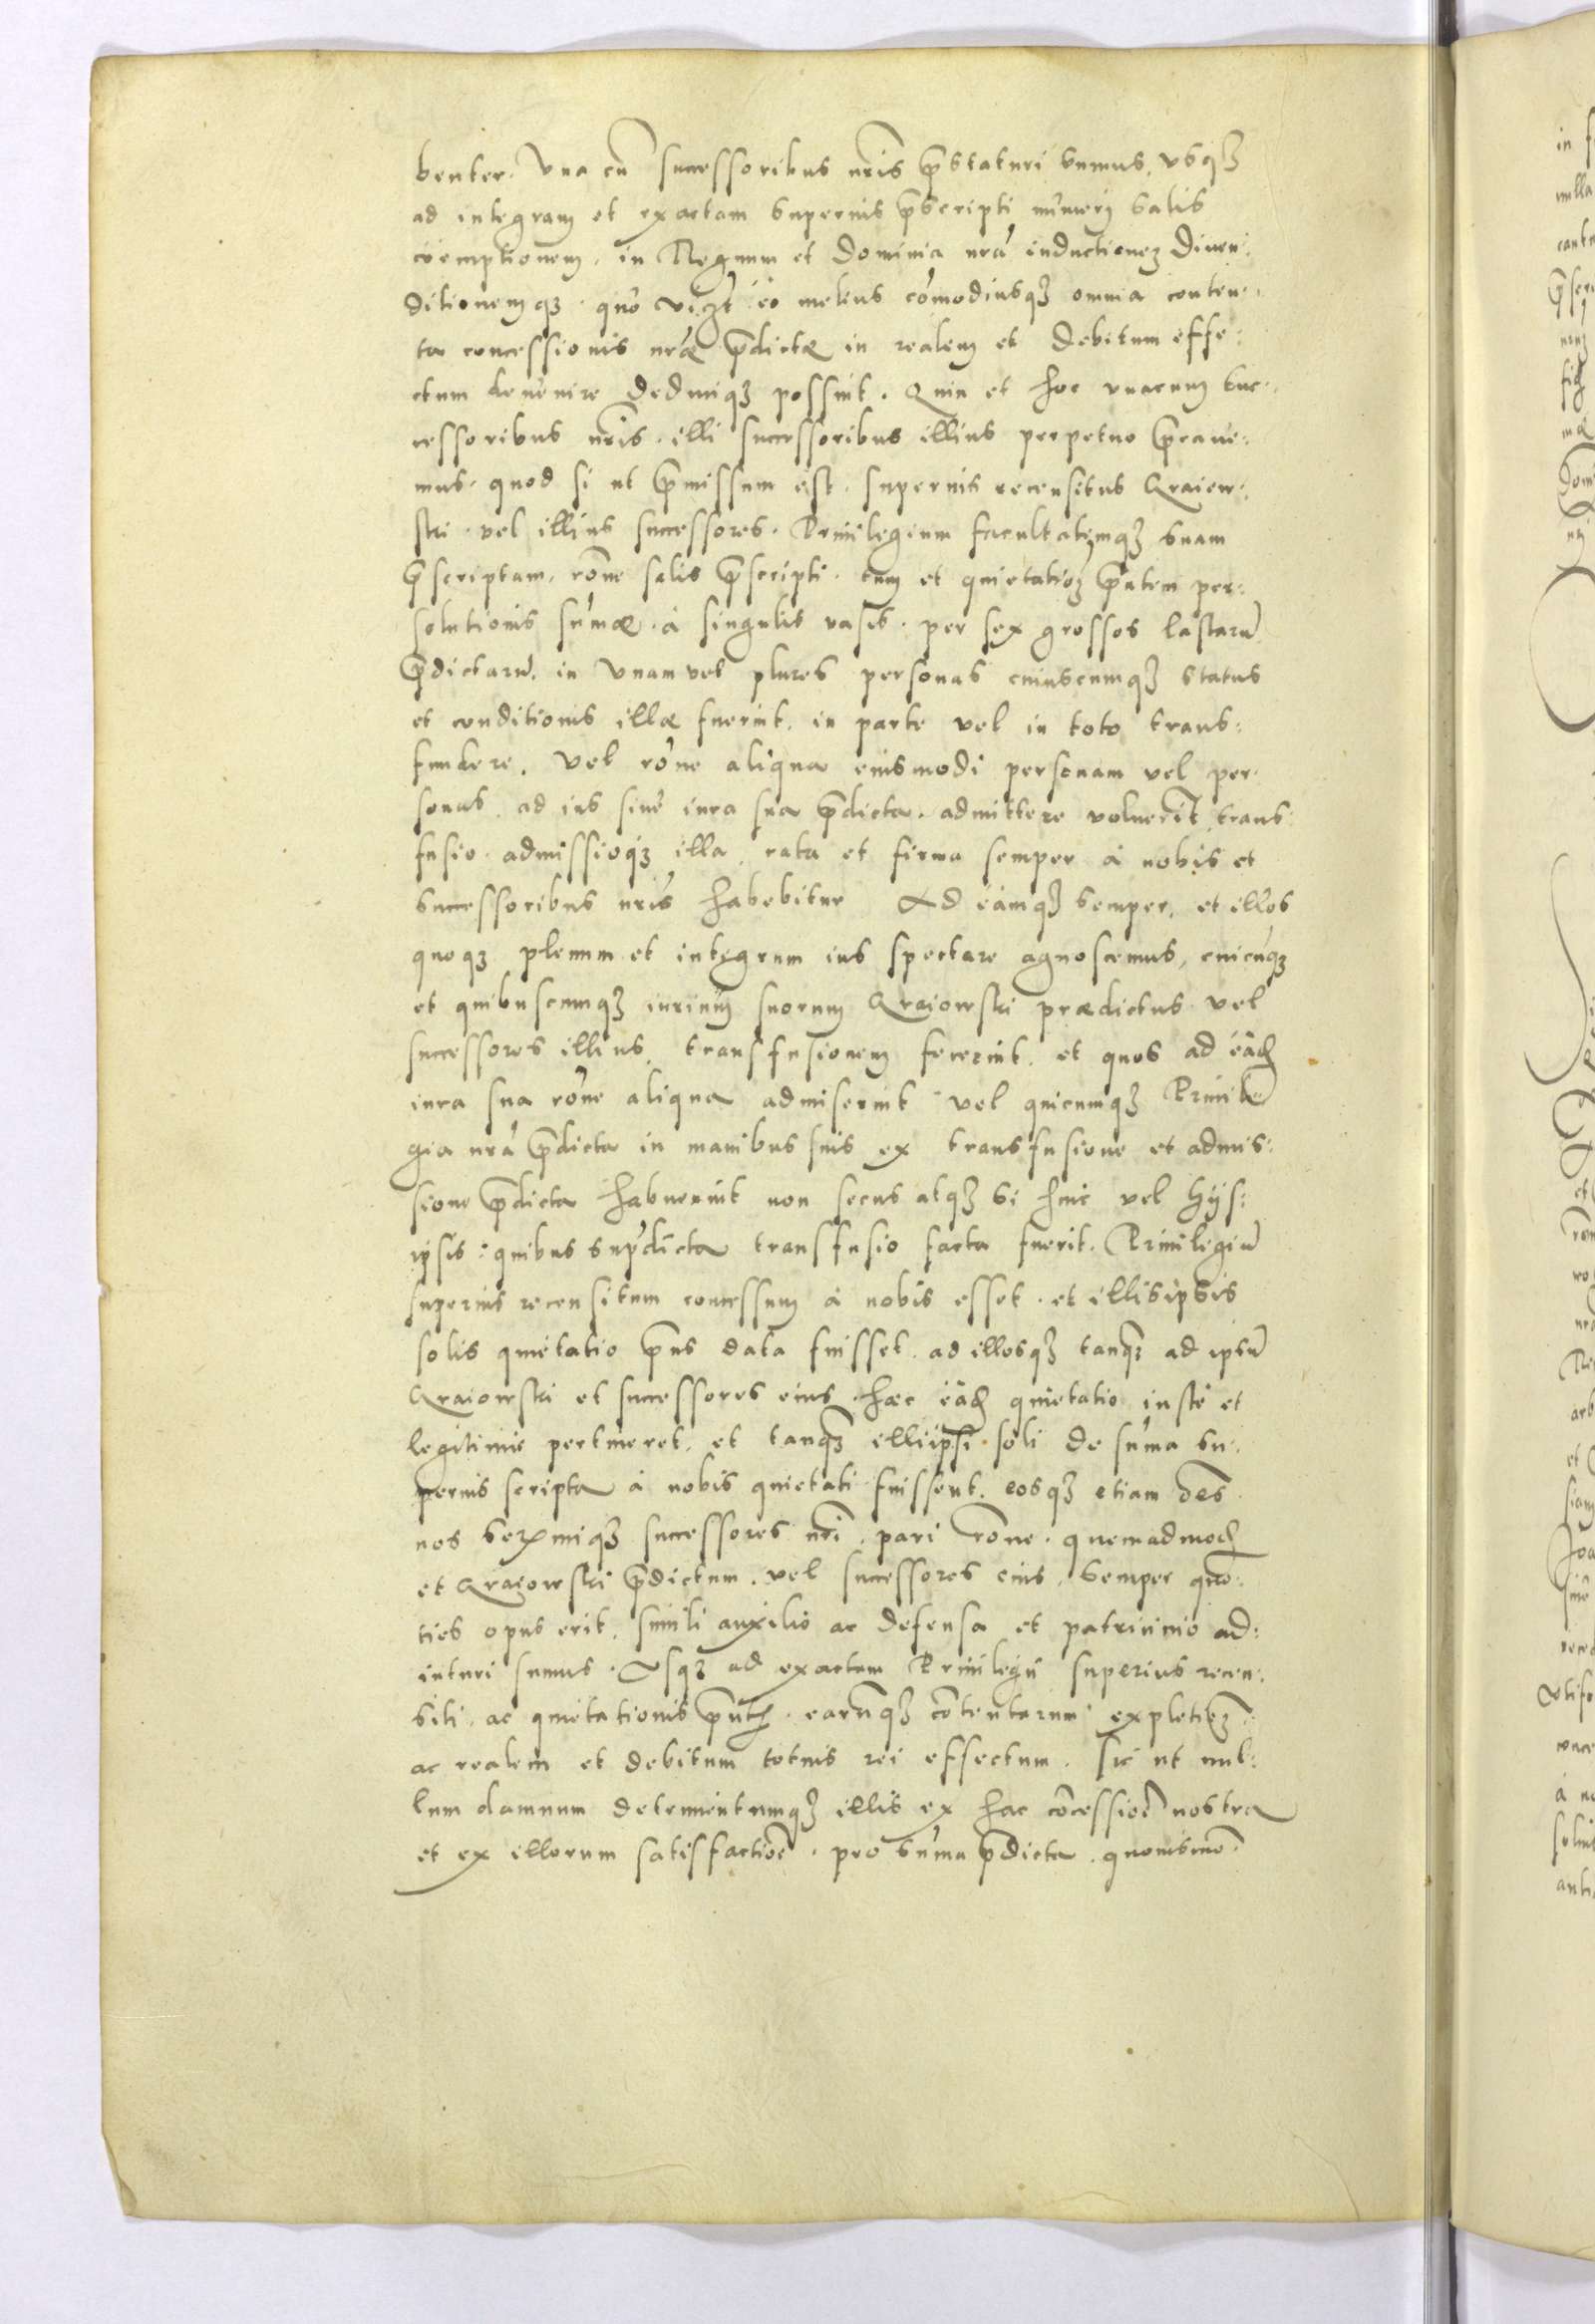 benter. Vna cũ successoribus nr̃is p̃staturi sumus, vsq₃
ad integram et exactam superius p̃scripti numeri salis
coemptionem, in Regnum et Dominia nr̃a inductionem diuen:
ditionemq₃. quo vizt eo melius cõmodiusq₃ omnia conten:
ta concessionis nr̃æ p̃dictæ in realem et debitum effe:
ctum deuenire deduciq₃ possint. Quin et hoc vnacum suc:
cessoribus nr̃is. illi successoribus illius perpetuo p̃caue:
mus. quod si ut p̃missum est. superius recensitus Kraiow:
ski. vel illius successores. Priuilegium facultatemq₃ suam
p̃scriptam, rõne salis p̃scripti. tum et quietatiõ₃ p̃ntem per:
solutionis sum̃æ. à singulis vasis. per sex grossos lastarũ
p̃dictarũ. in vnam vel plures personas cuiuscumq₃ status
et conditionis illæ fuerint. in parte vel in toto trans:
fundere. Vel rõne aliqua eiusmodi personam vel per:
sonas. ad ius siue iura sua p̃dicta. admittere voluerĩt, trans:
fusio. admissioq₃ illa, rata et firma semper à nobis et
successoribus nr̃is habebitur Ad eamq₃ semper, et illos
quoq₃ plenum et integrum ius spectare agnoscemus, cuicũq₃
et quibuscumq₃ iurium suorum Kraiowski prædictus vel
successores illius, transfusionem fecerint. et quos ad eãd
iura sua rõne aliqua admiserint vel quicumq₃ Priuile
gia nr̃a p̃dicta in manibus suis ex transfusione et admis:
sione p̃dicta habuerint non secus atq₃ si huic vel hijs:
ipsis: quibus sup̃dicta transfusio facta fuerit. Priuilegiũ
superius recensitum concessum à nobis esset. et illisipsis
solis quietatio p̃ns data fuisset. ad illosq₃ tanq₃ ad ipsũ
Kraiowski et successores eius. hæc eãd quietatio iuste et
legitime pertineret. et tanq₃ illiipsi. soli de sum̃a su:
perius scripta à nobis quietati fuissent. eosq₃ etiam oẽs
nos Serẽmiq₃ successores nr̃i. pari rõne. quemadmod
et Kraiowski p̃dictum. vel successores eius, semper quo:
ties opus erit. simili auxilio ac defensa et patrocinio ad:
iuturi sumus. Vsq₃ ad exactam Priuilegij superius recen:
siti. ac quietationis p̃ntis. earũq₃ cõtentarum expletiõ₃:
ac realem et debitum totius rei effectum. Sic ut nul:
lum damnum detrimentumq₃ illis ex hac cõcessiõe nostra
et ex illorum satisfactiõe. pro sum̃a p̃dicta. quouismõ